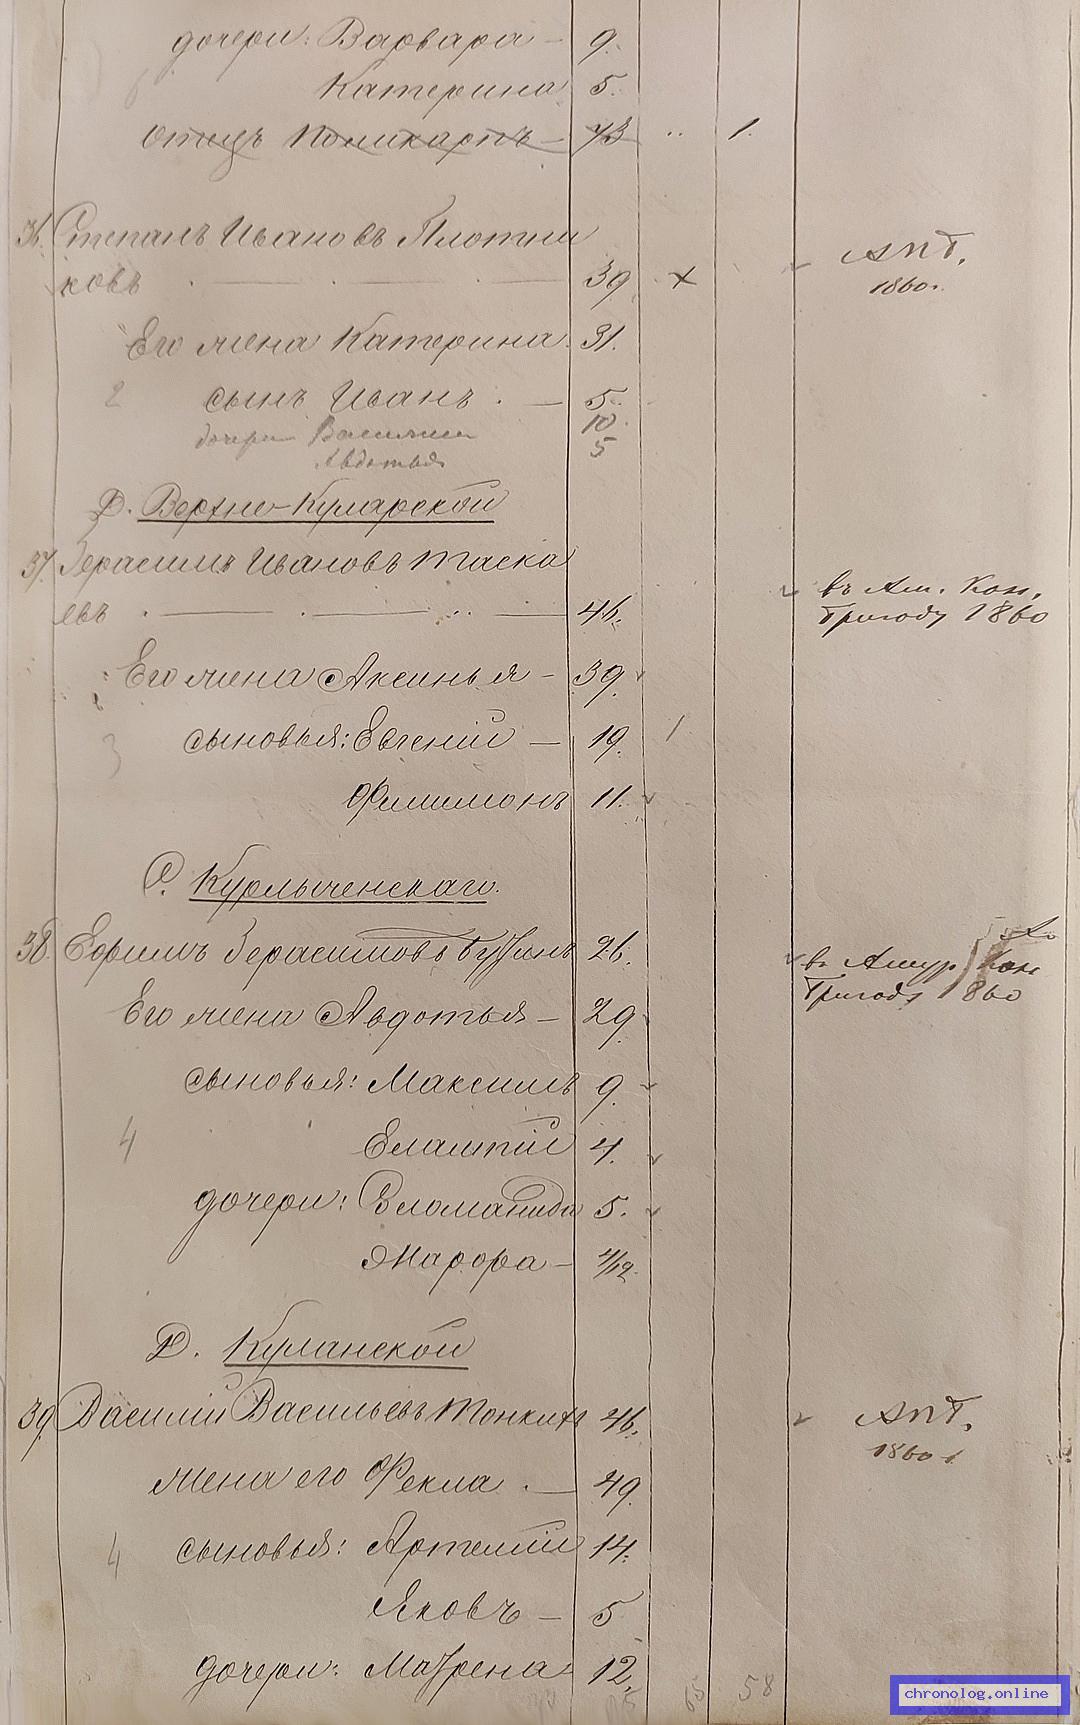 дочери: Варвара — 9.
Катерина 5.
отецъ Поликарпъ — 73 1.
36. Степанъ Ивановъ Плотни
ковъ 39. х АПБ.
1860.
Его жена Катерина. 31.
2 сынъ Иванъ. — 5.
дочери Василиса 10.
Авдотья 5
Д. Верхне-Кумарской
37. Герасимъ Ивановъ Таска
евъ 46. въ Ам. Кон.
Бригаду 1860
Его жена Аксинья — 39.
3 сыновья: Евгеній — 19. 1
Филимонъ 11.
С. Курлыченскаго.
38. Ефимъ Герасимовъ 26. въ Амур Кон
Бригаду 1860
Его жена Авдотья — 29.
сыновья: Максимъ 9.
4 Елампій 4.
дочери: Соломанида 5.
Марфа — 4/12.
Д. Куманской
39. Василій Васильевъ Тонкихъ 46. АПБ.
1860 г.
жена его Фекла. — 49.
4 сыновья: Артемій 14.
Яковъ — 5
дочери: Матрена 12.
65 58
chronolog.online